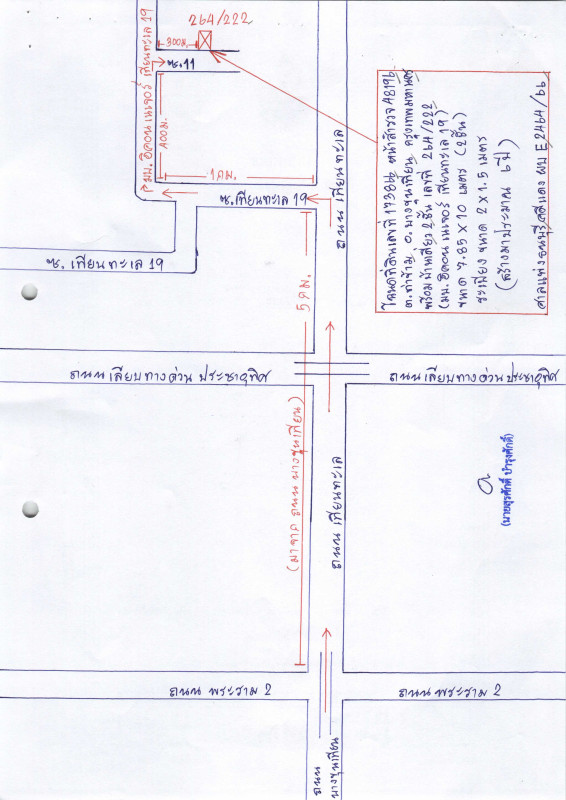 264/222
300ม.
ซ.11
400ม.
ม. อิคอน เนเจอร์ เทียนทะเล 19
1กม.
ซ.เทียนทะเล 19
ซ. เทียนทะเล 19
ถนน เทียนทะเล
5กม.
(มาจาก ถนน บางขุนเทียน)
ถนน เลียบทางด่วน ประชาอุทิศ
ถนน เลียบทางด่วน ประชาอุทิศ
ถนน เทียนทะเล
ถนน พระราม 2
ถนน พระราม 2
ถนน
บางขุนเทียน
โฉนดที่ดินเลขที่ 173866 หน้าสำรวจ 48196
ต.ท่าข้าม อ.บางขุนเทียน กรุงเทพมหานคร
พร้อมบ้านเดี่ยว 2 ชั้น เลขที่ 264/222
(มบ. อิคอน เนเจอร์ เทียนทะเล 19)
ขนาด 7.85 X 10 เมตร (2ชั้น)
ระเบียง ขนาด 2 X 1.5 เมตร
(สร้างมาประมาณ 6 ปี)
ศาลแพ่งธนบุรี คดีแดง ผบ E 2464/66
(นายสุรศักดิ์ บำรุงศักดิ์)